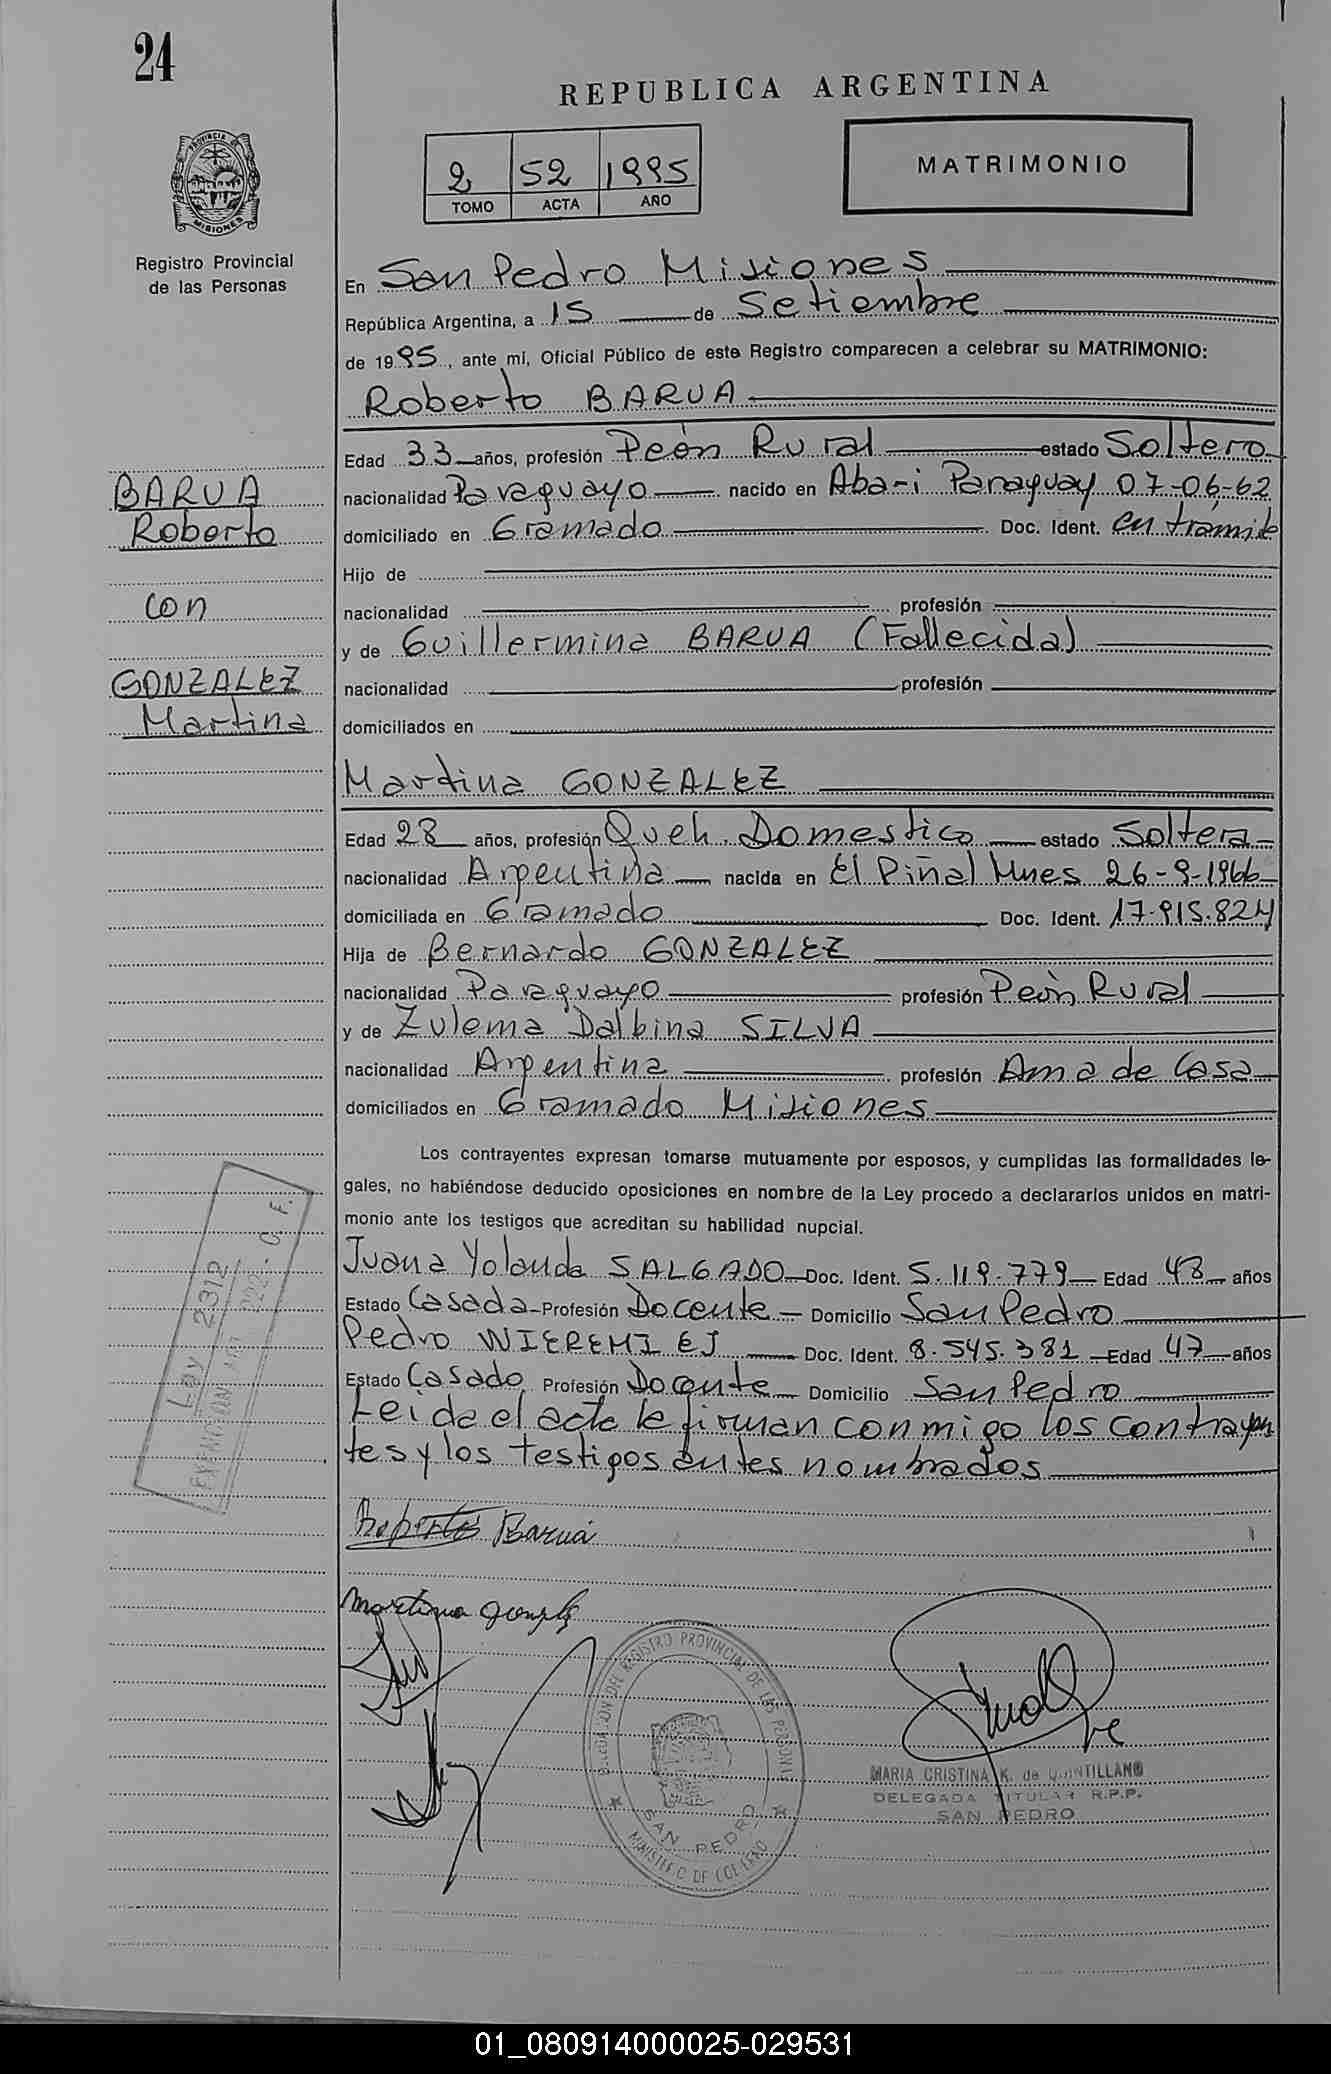 24
REPUBLICA ARGENTINA
PROVINCIA DE
MISIONES
2 52 1995
TOMO ACTA AÑO
MATRIMONIO
Registro Provincial
de las Personas
En San Pedro Misiones
República Argentina, a 15 de Setiembre
de 1995, ante mí, Oficial Público de este Registro comparecen a celebrar su MATRIMONIO:
Roberto BARUA
Edad 33 años, profesión Peón Rural estado Soltero
BARUA
nacionalidad Paraguayo nacido en Aba-i Paraguay 07-06-62
Roberto
domiciliado en Gramado Doc. Ident. en trámite
Hijo de
con
nacionalidad profesión
y de Guillermina BARUA (Fallecida)
GONZALEZ
nacionalidad profesión
Martina
domiciliados en
Martina GONZALEZ
Edad 28 años, profesión Queh. Domestico estado Soltera
nacionalidad Argentina nacida en El Piñal Mnes 26-9-1966
domiciliada en Gramado Doc. Ident. 17.915.824
Hija de Bernardo GONZALEZ
nacionalidad Paraguayo profesión Peón Rural
y de Zulema Dalbina SILVA
nacionalidad Argentina profesión Ama de Casa
domiciliados en Gramado Misiones
Los contrayentes expresan tomarse mutuamente por esposos, y cumplidas las formalidades le-
gales, no habiéndose deducido oposiciones en nombre de la Ley procedo a declararlos unidos en matri-
monio ante los testigos que acreditan su habilidad nupcial.
Juana Yolanda SALGADO Doc. Ident. 5.119.779 Edad 48 años
Estado Casada Profesión Docente Domicilio San Pedro
Pedro WIEREMIEJ Doc. Ident. 8.545.381 Edad 47 años
Estado Casado Profesión Docente Domicilio San Pedro
Leida el acta la firman conmigo los contrayen
tes y los testigos antes nombrados
Ley 2312
EXENCION ART 222 - C. F.
Roberto Barua
Martina Gonzalez
DELEGACION DEL REGISTRO PROVINCIAL DE LAS PERSONAS
SAN PEDRO
MINISTERIO DE GOBIERNO
MARIA CRISTINA K. de QUINTILLAN
DELEGADA TITULAR R.P.P.
SAN PEDRO
01_080914000025-029531